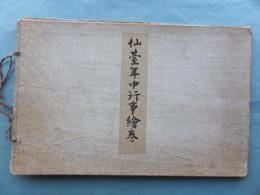 仙臺年中行事繪巻